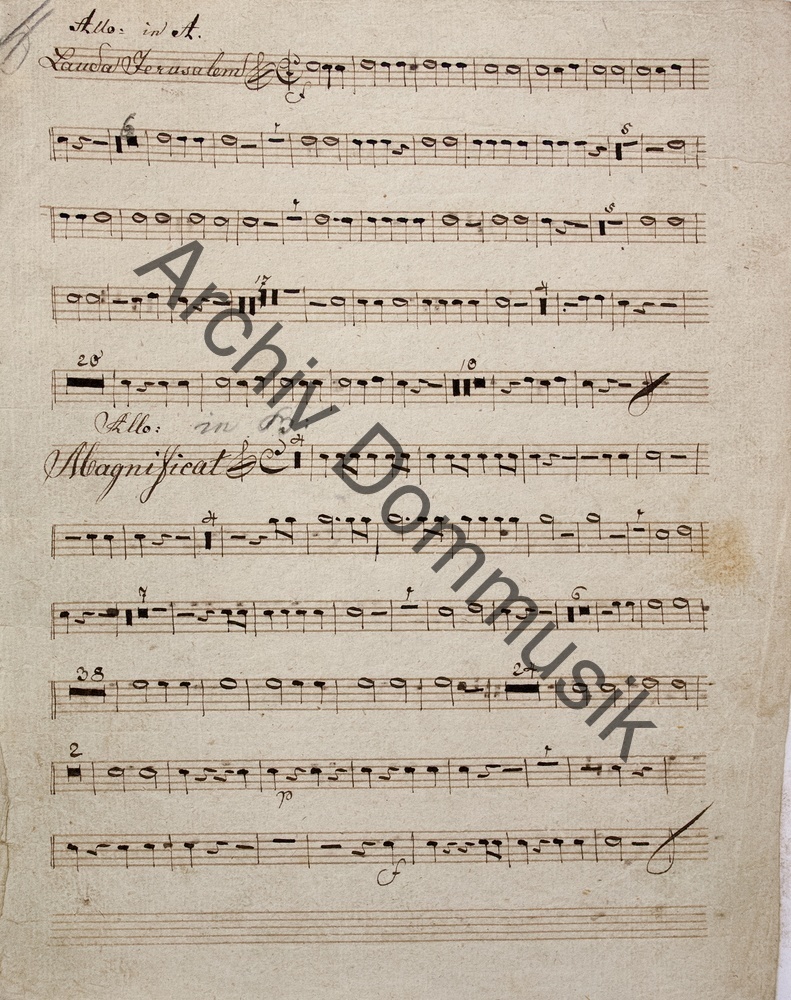 Allo: in A.
Lauda Jerusalem
f
6 1 5
1 5
17 4
20 10
Allo: in B:
Magnificat 4
4 1
7 1 6
38 24
2 1
p
f
Archiv Dommusik